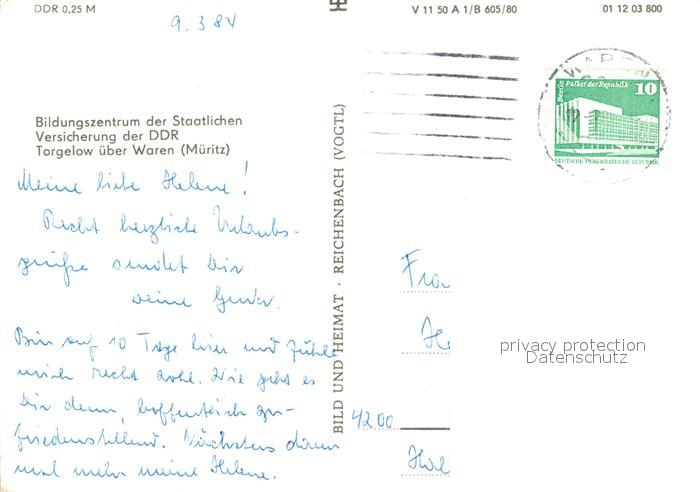 DDR 0,25 M
V 11 50 A 1/B 605/80
01 12 03 800
9. 3 84
WAREN
Berlin Palast der Republik
10
DEUTSCHE DEMOKRATISCHE REPUBLIK
Bildungszentrum der Staatlichen
Versicherung der DDR
Torgelow über Waren (Müritz)
Meine liebe Helene!
Recht herzliche Urlaubs-
grüße sendet Dir
Deine
Bin auf 10 Tage hier und fühle
mich recht wohl. Wie geht es
Dir denn, hoffentlich zu-
friedenstellend. Nächstens dann
mal mehr meine Helene.
BILD UND HEIMAT · REICHENBACH (VOGTL)
Frau
He
4200
Hal
privacy protection
Datenschutz